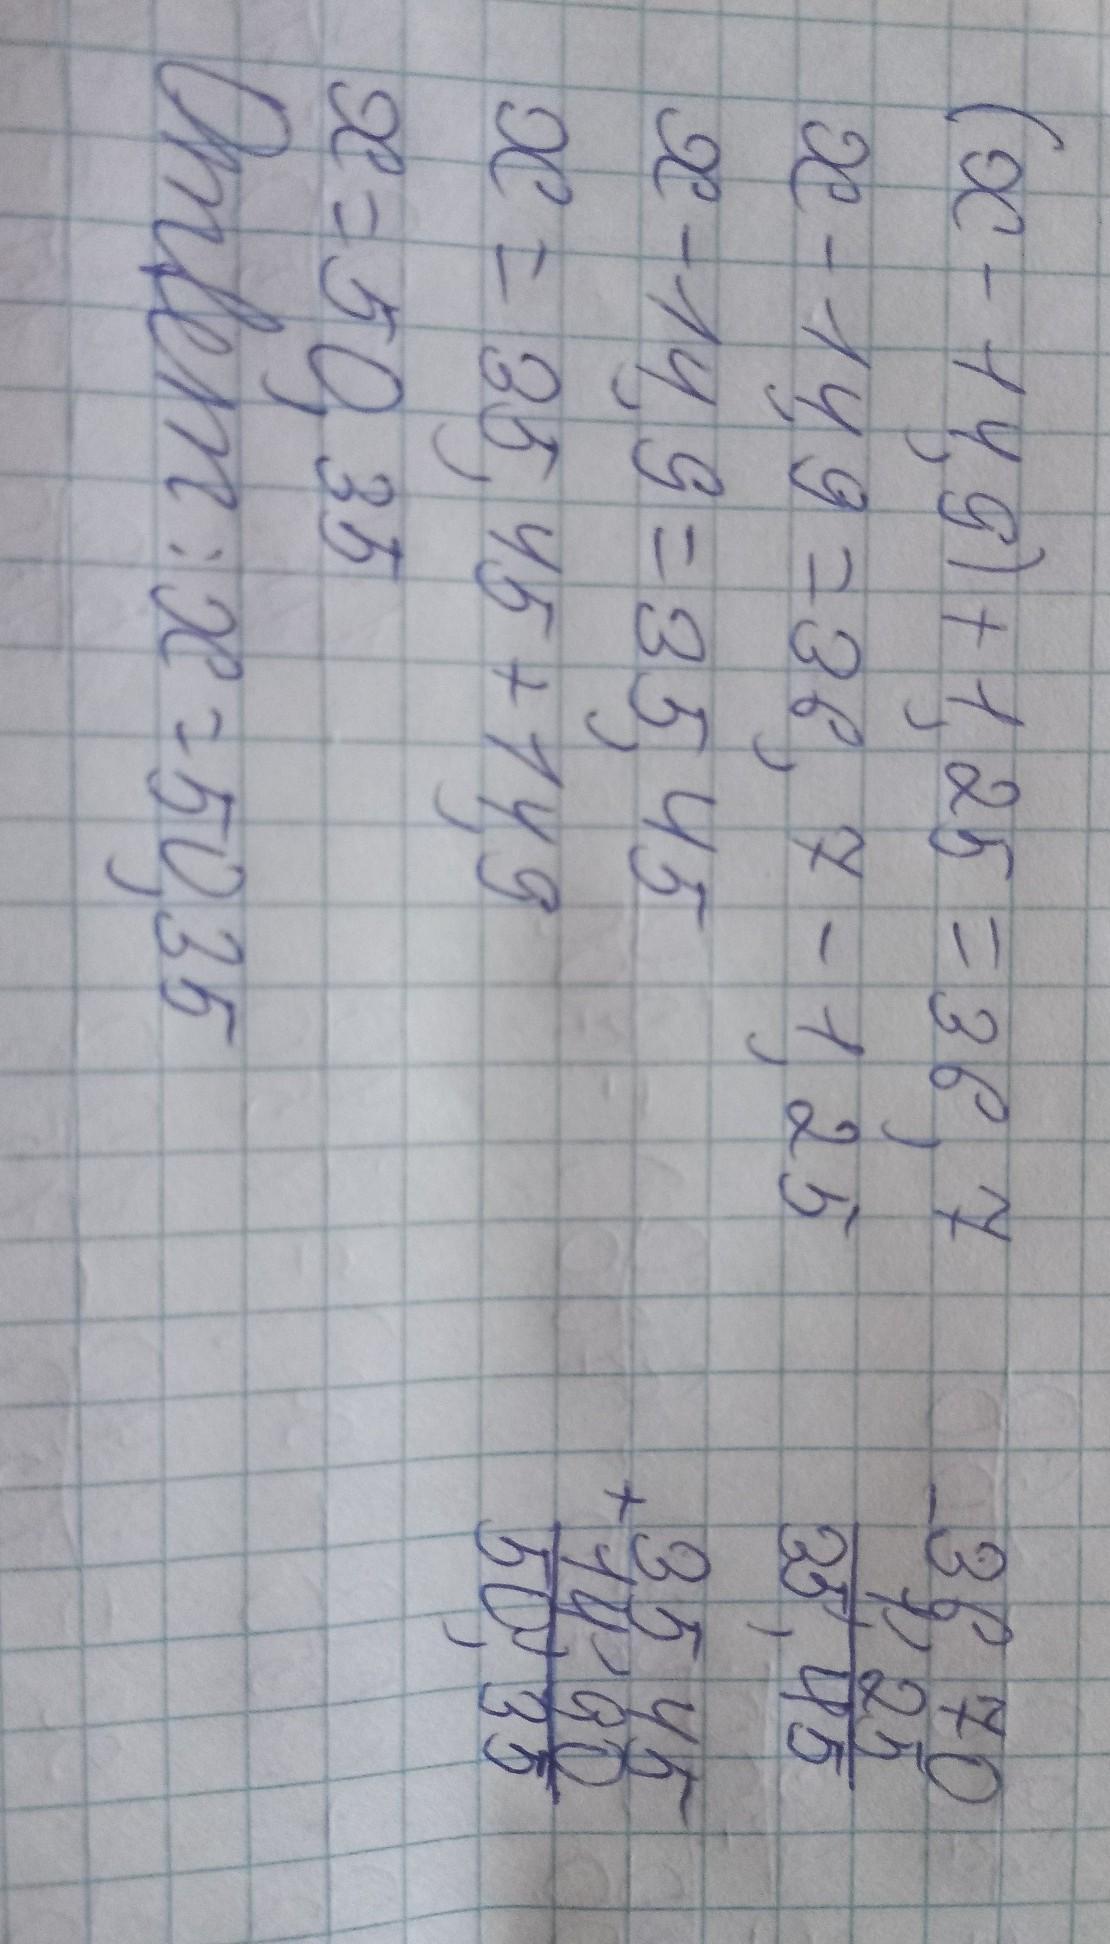 (x - 14,9) + 1,25 = 36,7
x - 14,9 = 36,7 - 1,25
x - 14,9 = 35,45
x = 35,45 + 14,9
x = 50,35
Ответ: x = 50,35
- 36 70
1,25
35,45
+ 35 45
14,90
50,35